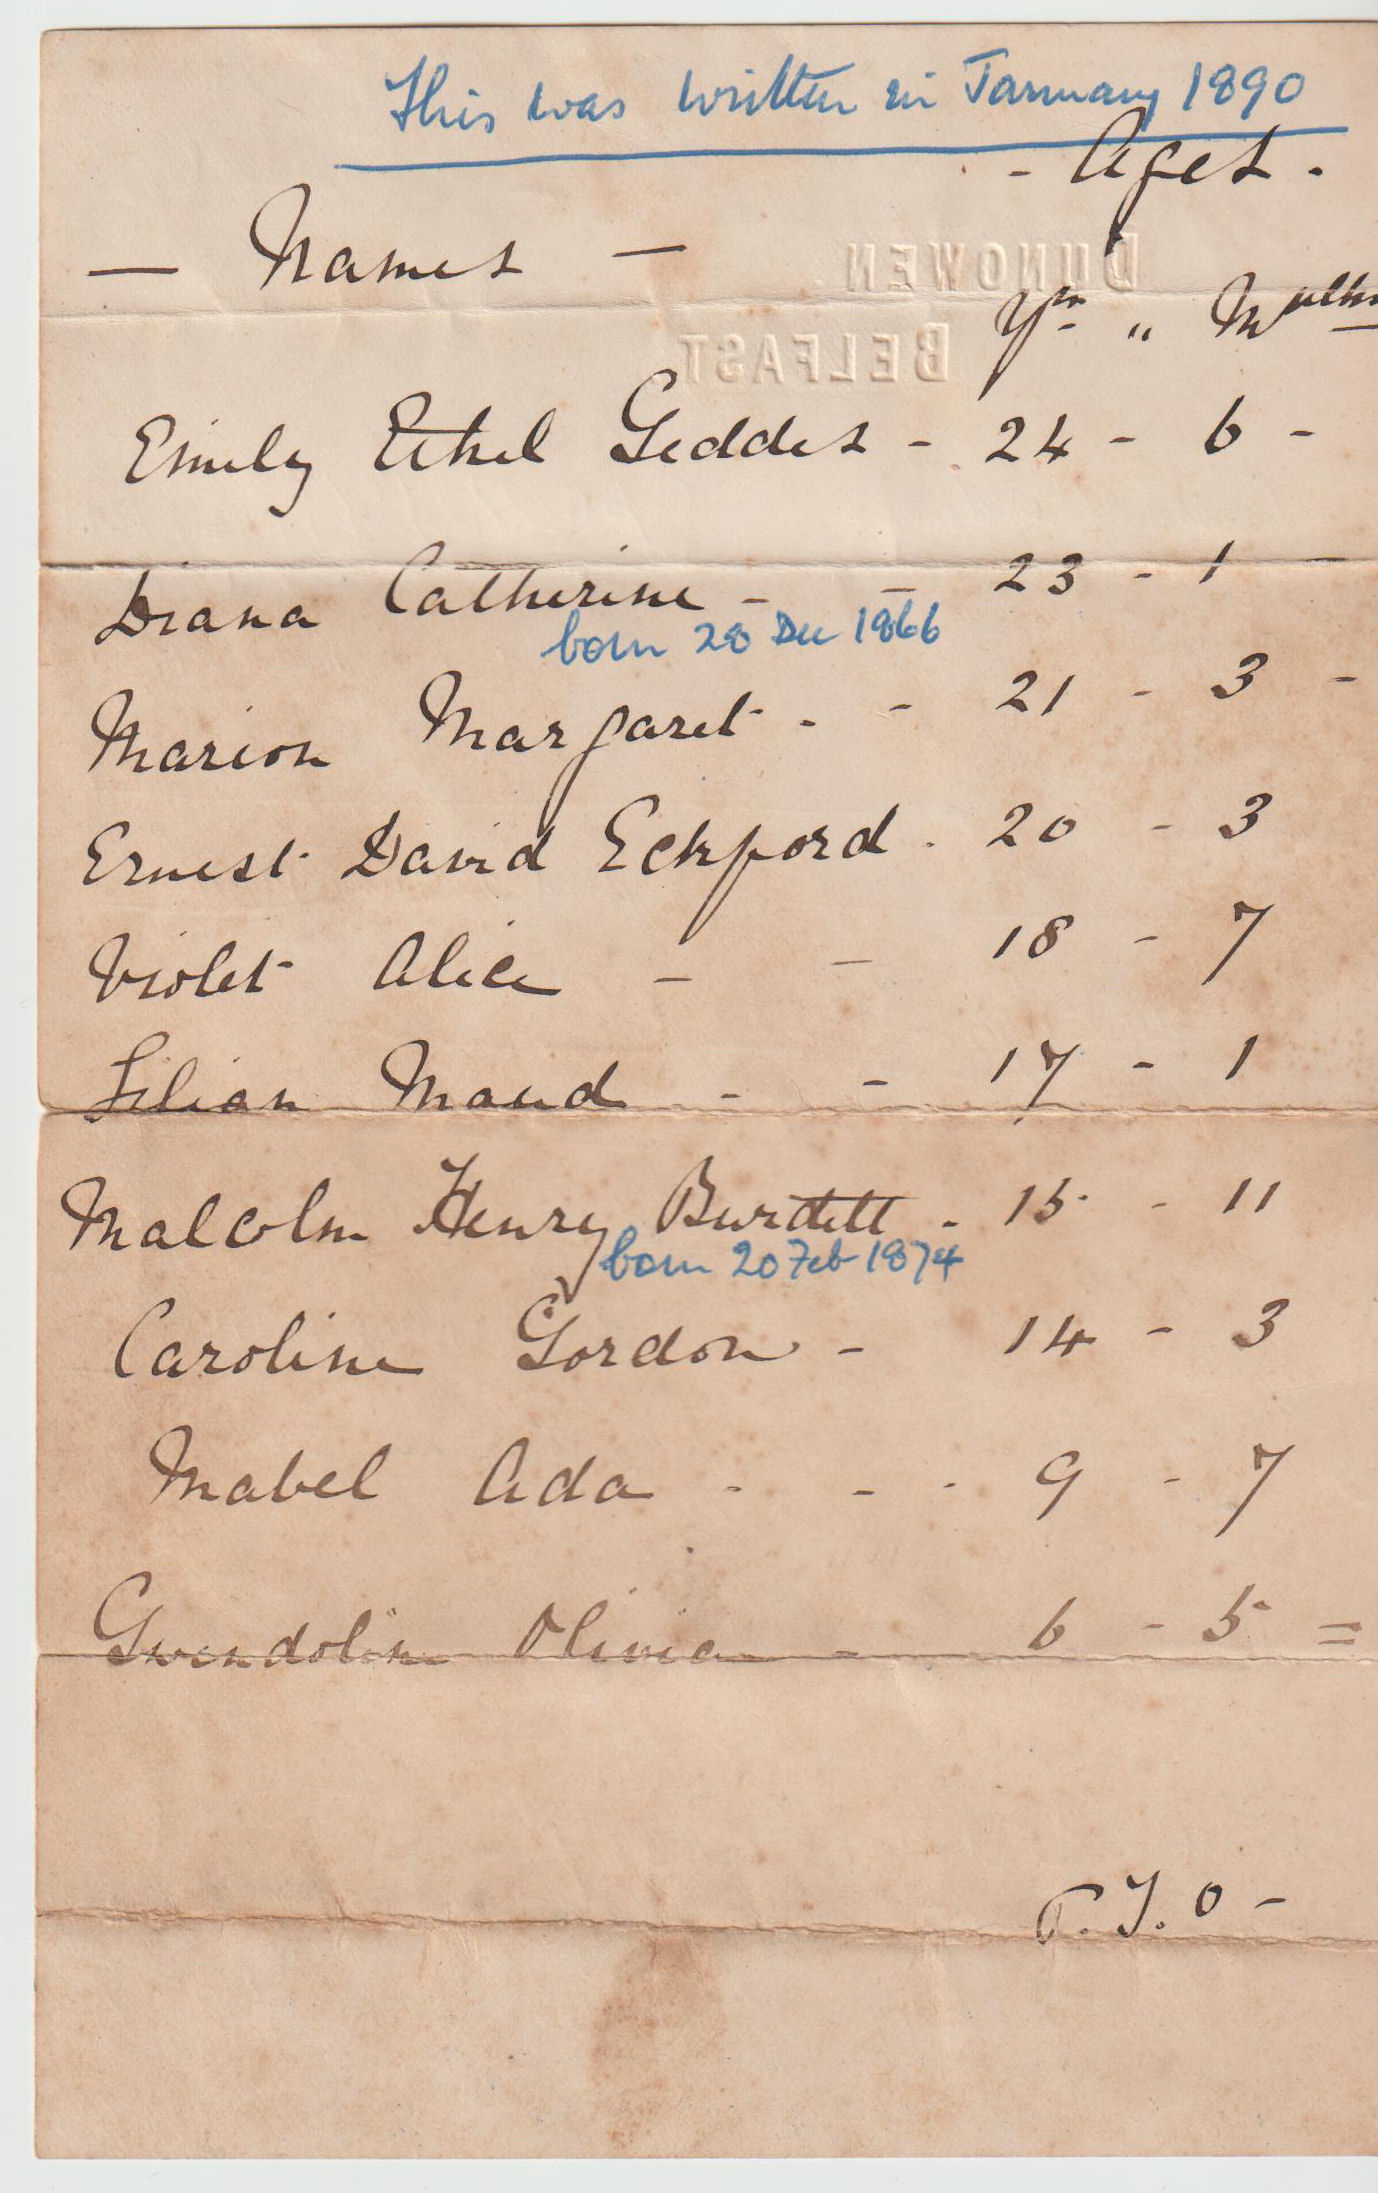 This was written in January 1890
- Ages -
— Names —
DUNOWEN
BELFAST
Yrs „ Mnths
Emily Ethel Geddes - 24 - 6 -
Diana Catherine - - 23 - 1 -
born 28 Dec 1866
Marion Margaret - - 21 - 3 -
Ernest David Eckford - 20 - 3
Violet Alice - - 18 - 7
Lilian Maud - - 17 - 1
Malcolm Henry Burdett - 15 - 11
born 20 Feb 1874
Caroline Gordon - 14 - 3
Mabel Ada - - - 9 - 7
Gwendoline Olivia - 6 - 5 =
P.T.O -